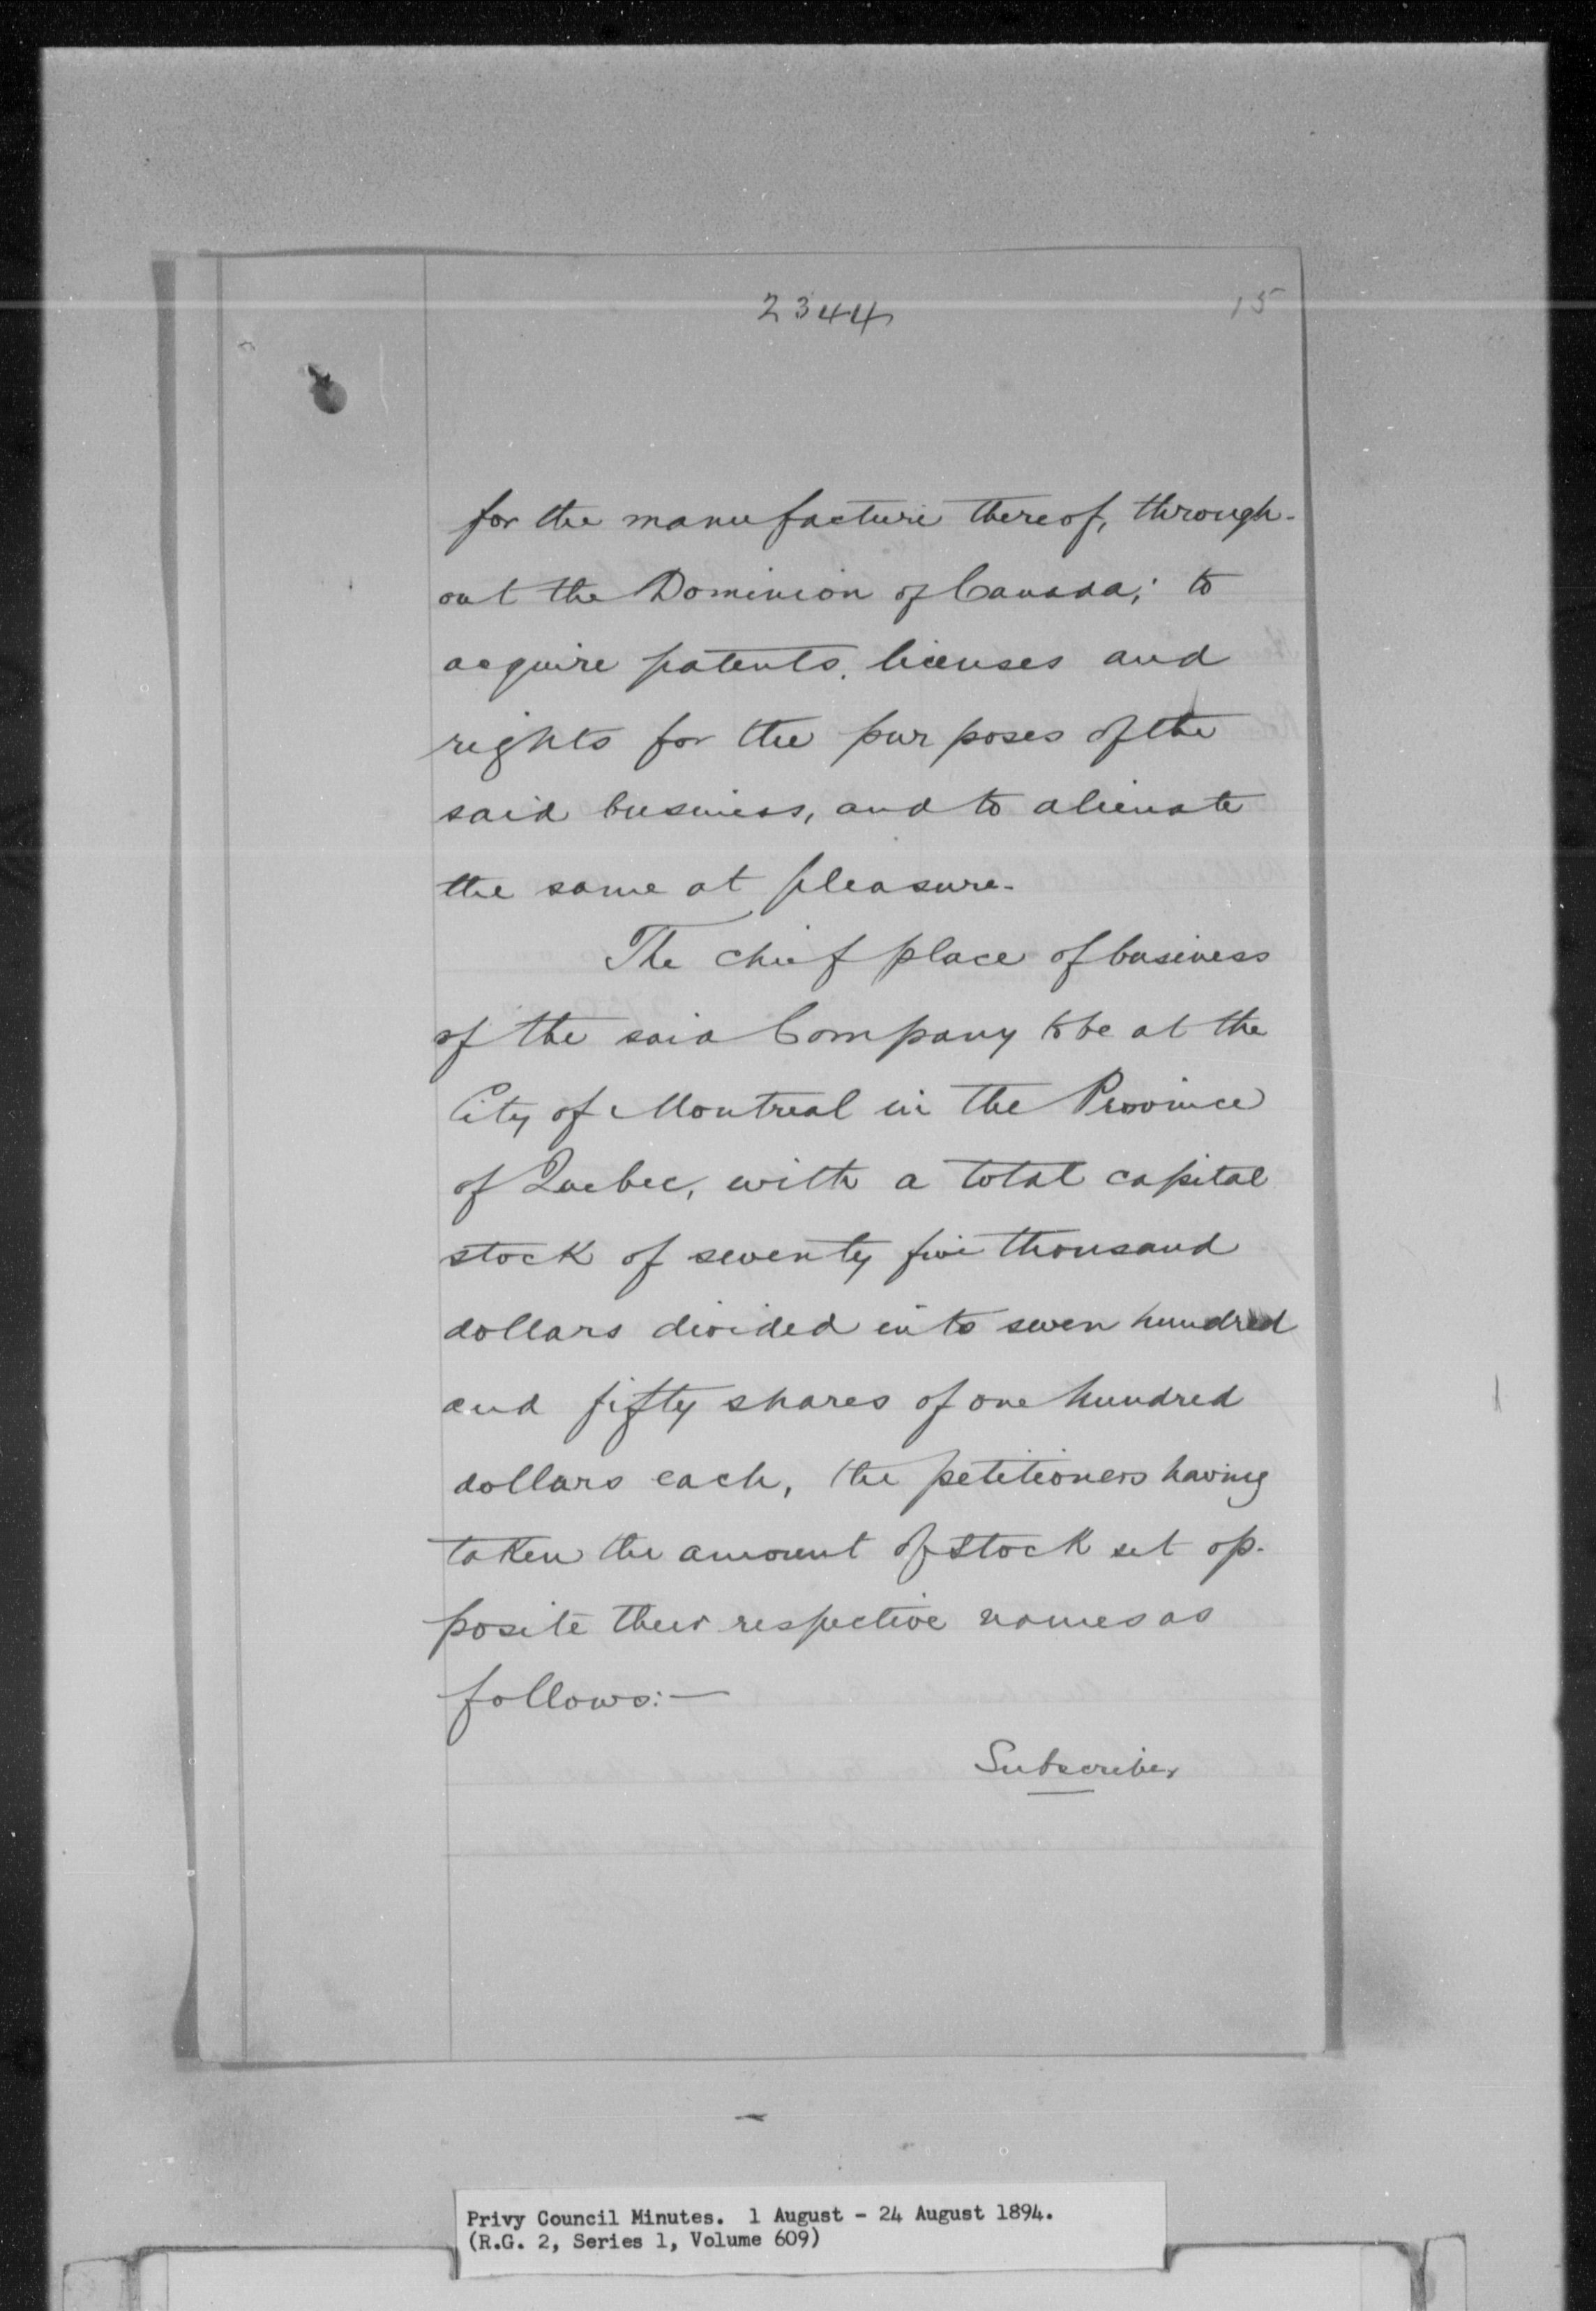 2344
15
for the manufacture thereof, through-
out the Dominion of Canada; to
acquire patents, licenses and
rights for the purposes of the
said business, and to alienate
the same at pleasure.
The chief place of business
of the said Company to be at the
City of Montreal in the Province
of Quebec, with a total capital
stock of seventy five thousand
dollars divided into seven hundred
and fifty shares of one hundred
dollars each, the petitioners having
taken the amount of stock set op-
posite their respective names as
follows:—
Subscriber
Privy Council Minutes. 1 August - 24 August 1894.
(R.G. 2, Series 1, Volume 609)